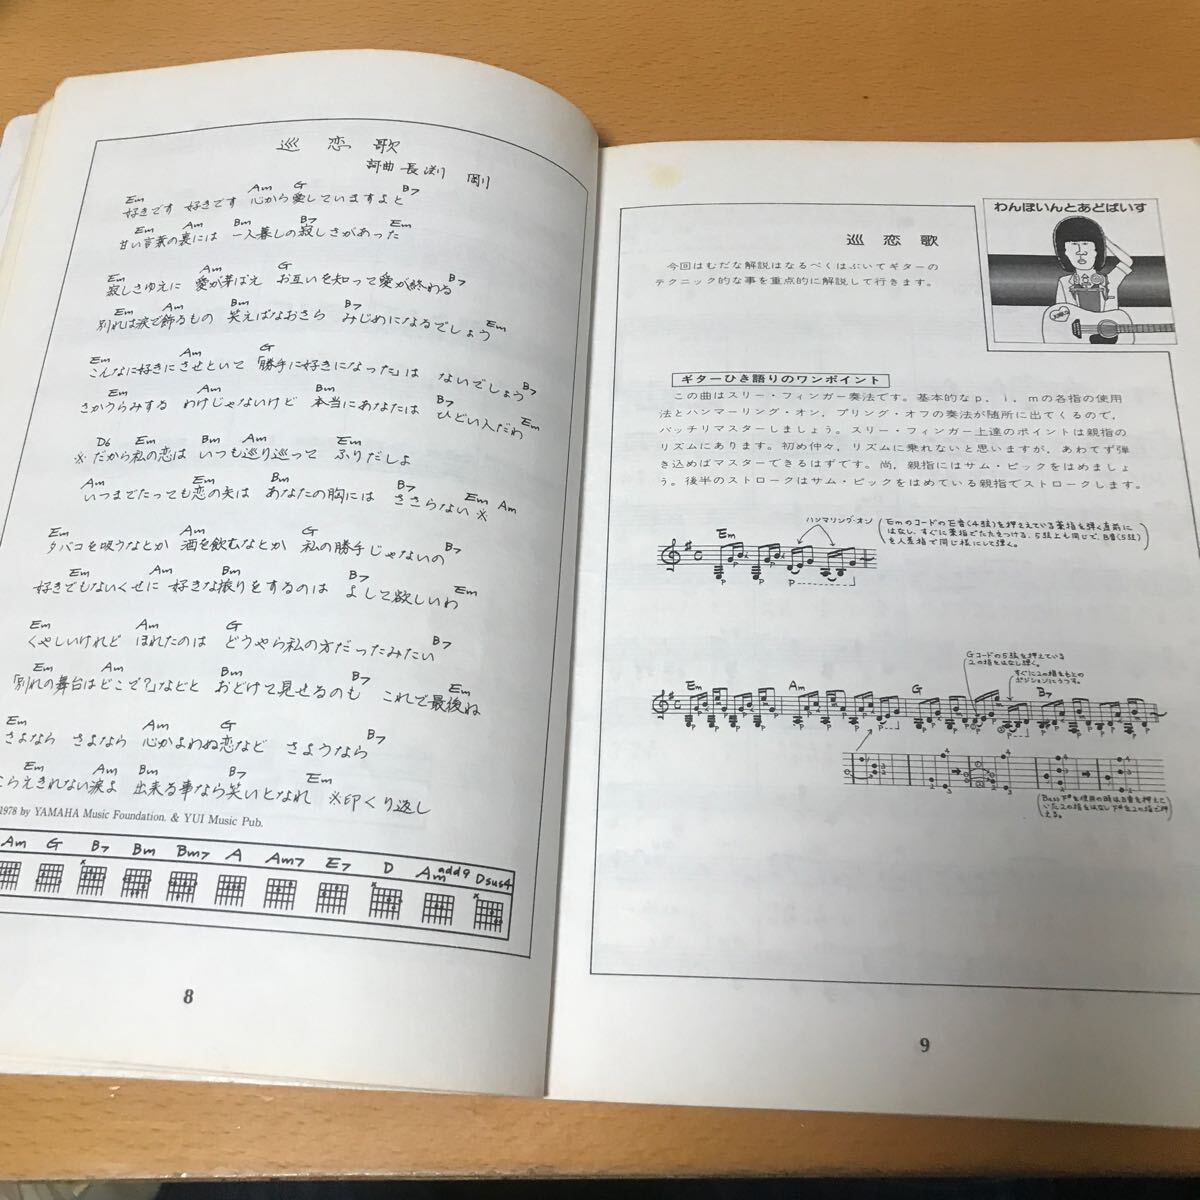 巡 恋 歌
詞曲 長渕 剛
Em Am G B7
好きです 好きです 心から愛していますよと
Em Am Bm B7 Em
甘い言葉の裏には 一人暮しの寂しさがあった
Am G B7
寂しさゆえに 愛が芽ばえ お互いを知って愛が終わる
Em Am Bm Em
別れは涙で飾るもの 笑えばなおさら みじめになるでしょう
Em Am G B7
こんなに好きにさせといて 「勝手に好きになった」は ないでしょう
Em Am Bm B7 Em
さかうらみする わけじゃないけど 本当にあなたは ひどい人だわ
D6 Em Bm Am Em
※だから私の恋は いつも巡り巡って ふりだしよ
Am Em Bm B7 Em Am
いつまでたっても恋の矢は あなたの胸には ささらない※
Em Am G B7
タバコを吸うなとか 酒を飲むなとか 私の勝手じゃないの
Em Am Bm B7 Em
好きでもないくせに 好きな振りをするのは よして欲しいわ
Em Am G B7
くやしいけれど ほれたのは どうやら私の方だったみたい
Em Am Bm Em
「別れの舞台はどこで?」などと おどけて見せるのも これで最後ね
Em Am G B7
さよなら さよなら 心かよわぬ恋など さようなら
Em Am Bm B7 Em
らえきれない涙よ 出来る事なら笑いとなれ ※印くり返し
1978 by YAMAHA Music Foundation. & YUI Music Pub.
Am G B7 Bm Bm7 A Am7 E7 D Amadd9 Dsus4
8
わんぽいんとあどばいす
巡 恋 歌
今回はむだな解説はなるべくはぶいてギターの
テクニック的な事を重点的に解説して行きます。
ギターひき語りのワンポイント
この曲はスリー・フィンガー奏法です。基本的なp, i, mの各指の使用
法とハンマーリング・オン、プリング・オフの奏法が随所に出てくるので、
バッチリマスターしましょう。スリー・フィンガー上達のポイントは親指の
リズムにあります。初め仲々、リズムに乗れないと思いますが、あわてず弾
き込めばマスターできるはずです。尚、親指にはサム・ピックをはめましょ
う。後半のストロークはサム・ピックをはめている親指でストロークします。
ハンマリング・オン
(Emのコードの E音(4弦)を押えている薬指を弾く直前に
はなし、すぐに薬指でたたきつける。5弦上も同じで、B音(5弦)
を人差指で同じ様にして弾く。)
Em
Gコードの5弦を押えている
2の指をはなし弾く。
すぐに2の指をもとの
ポジションにうつす。
Em Am G B7
(Bass F#を使用の時はB音を押えて
いた2の指をはなしF#を2の指で押
える。)
9